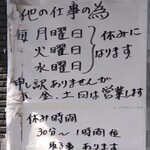 他の仕事の為
毎 月曜日
火曜日 休みに
水曜日 なります
申し訳ありませんが
木、金、土日は営業します
休み時間
30分〜1時間位
取る事あります